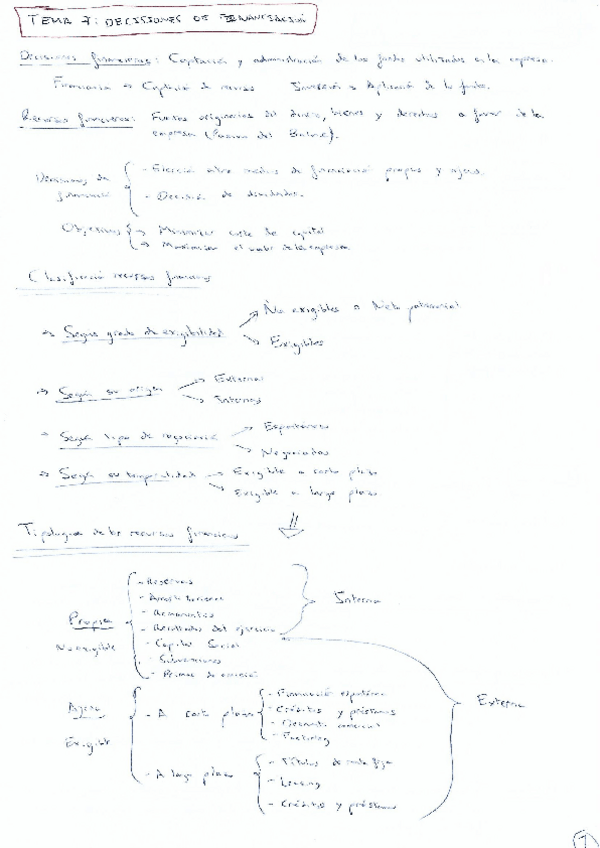 TEMA 7: DECISIONES DE FINANCIACIÓN
Decisiones financieras: Captación y administración de los fondos utilizados en la empresa.
Financiación → Captación de recursos Inversión → Aplicación de los fondos.
Recursos financieros: Fuentes originarias del dinero, bienes y derechos a favor de la
empresa (Pasivo del Balance).
Decisiones de
financiación
- Elección entre medios de financiación propios y ajenos.
- Decisión de dividendos.
Objetivos
→ Minimizar coste de capital
→ Maximizar el valor de la empresa
Clasificación recursos financieros
→ Según grado de exigibilidad
No exigibles o Neto patrimonial
Exigibles
→ Según su origen
Externos
Internos
→ Según tipo de
Espontáneos
Negociados
→ Según su temporalidad
Exigible a corto plazo
Exigible a largo plazo
Tipología de los recursos financieros
Propia
No exigible
- Reservas
- Amortizaciones
- Resultados del ejercicio
- Capital Social
- Subvenciones
- Primas de emisión
Interna
Externa
Ajena
Exigible
- A corto plazo
- Financiación espontánea
- Créditos y préstamos
- Descuento comercial
- Factoring
- A largo plazo
- Títulos de renta fija
- Leasing
- Créditos y préstamos